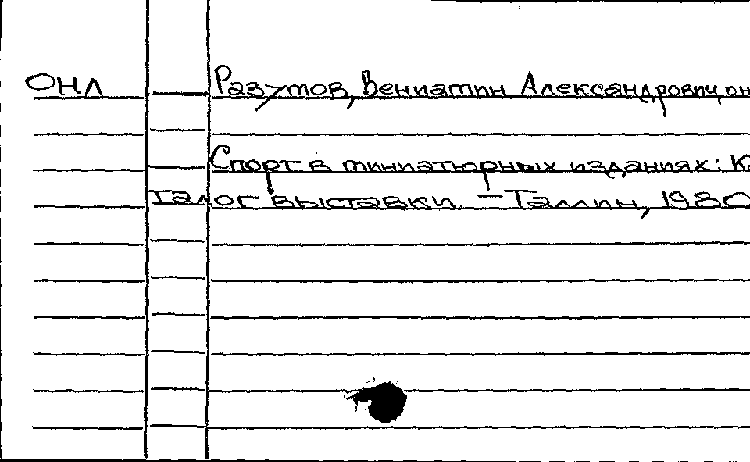 ОНЛ Разумов, Вениамин Александрович
Спорт в миниатюрных изданиях: Ка
талог выставки. — Таллин, 1980